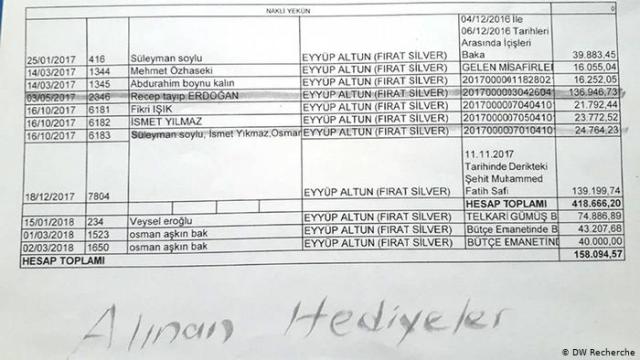 NAKLİ YEKÜN 0
04/12/2016 İle
06/12/2016 Tarihleri
Arasında İçişleri
25/01/2017 416 Süleyman soylu EYYÜP ALTUN (FIRAT SİLVER) Baka 39.883,45
14/03/2017 1344 Mehmet Özhaseki EYYÜP ALTUN (FIRAT SİLVER) GELEN MİSAFİRLE 16.055,04
14/03/2017 1345 Abdurahim boynu kalın EYYÜP ALTUN (FIRAT SİLVER) 2017000001182802 16.252,05
03/05/2017 2346 Recep tayıp ERDOĞAN EYYÜP ALTUN (FIRAT SİLVER) 2017000003042604 136.946,73
16/10/2017 6181 Fikri IŞIK EYYÜP ALTUN (FIRAT SİLVER) 2017000007040410 21.792,44
16/10/2017 6182 İSMET YILMAZ EYYÜP ALTUN (FIRAT SİLVER) 2017000007050410 23.772,52
16/10/2017 6183 Süleyman soylu, İsmet Yıkmaz,Osman EYYÜP ALTUN (FIRAT SİLVER) 2017000007010410 24.764,23
11.11.2017
Tarihinde Derikteki
Şehit Muhammed
18/12/2017 7804 EYYÜP ALTUN (FIRAT SİLVER) Fatih Safi 139.199,74
HESAP TOPLAMI 418.666,20
15/01/2018 234 Veysel eroğlu EYYÜP ALTUN (FIRAT SİLVER) TELKARİ GÜMÜŞ B 74.886,89
01/03/2018 1523 osman aşkın bak EYYÜP ALTUN (FIRAT SİLVER) Bütçe Emanetinde B 43.207,68
02/03/2018 1650 osman aşkın bak EYYÜP ALTUN (FIRAT SİLVER) BÜTÇE EMANETİN 40.000,00
HESAP TOPLAMI 158.094,57
Alınan Hediyeler
© DW Recherche